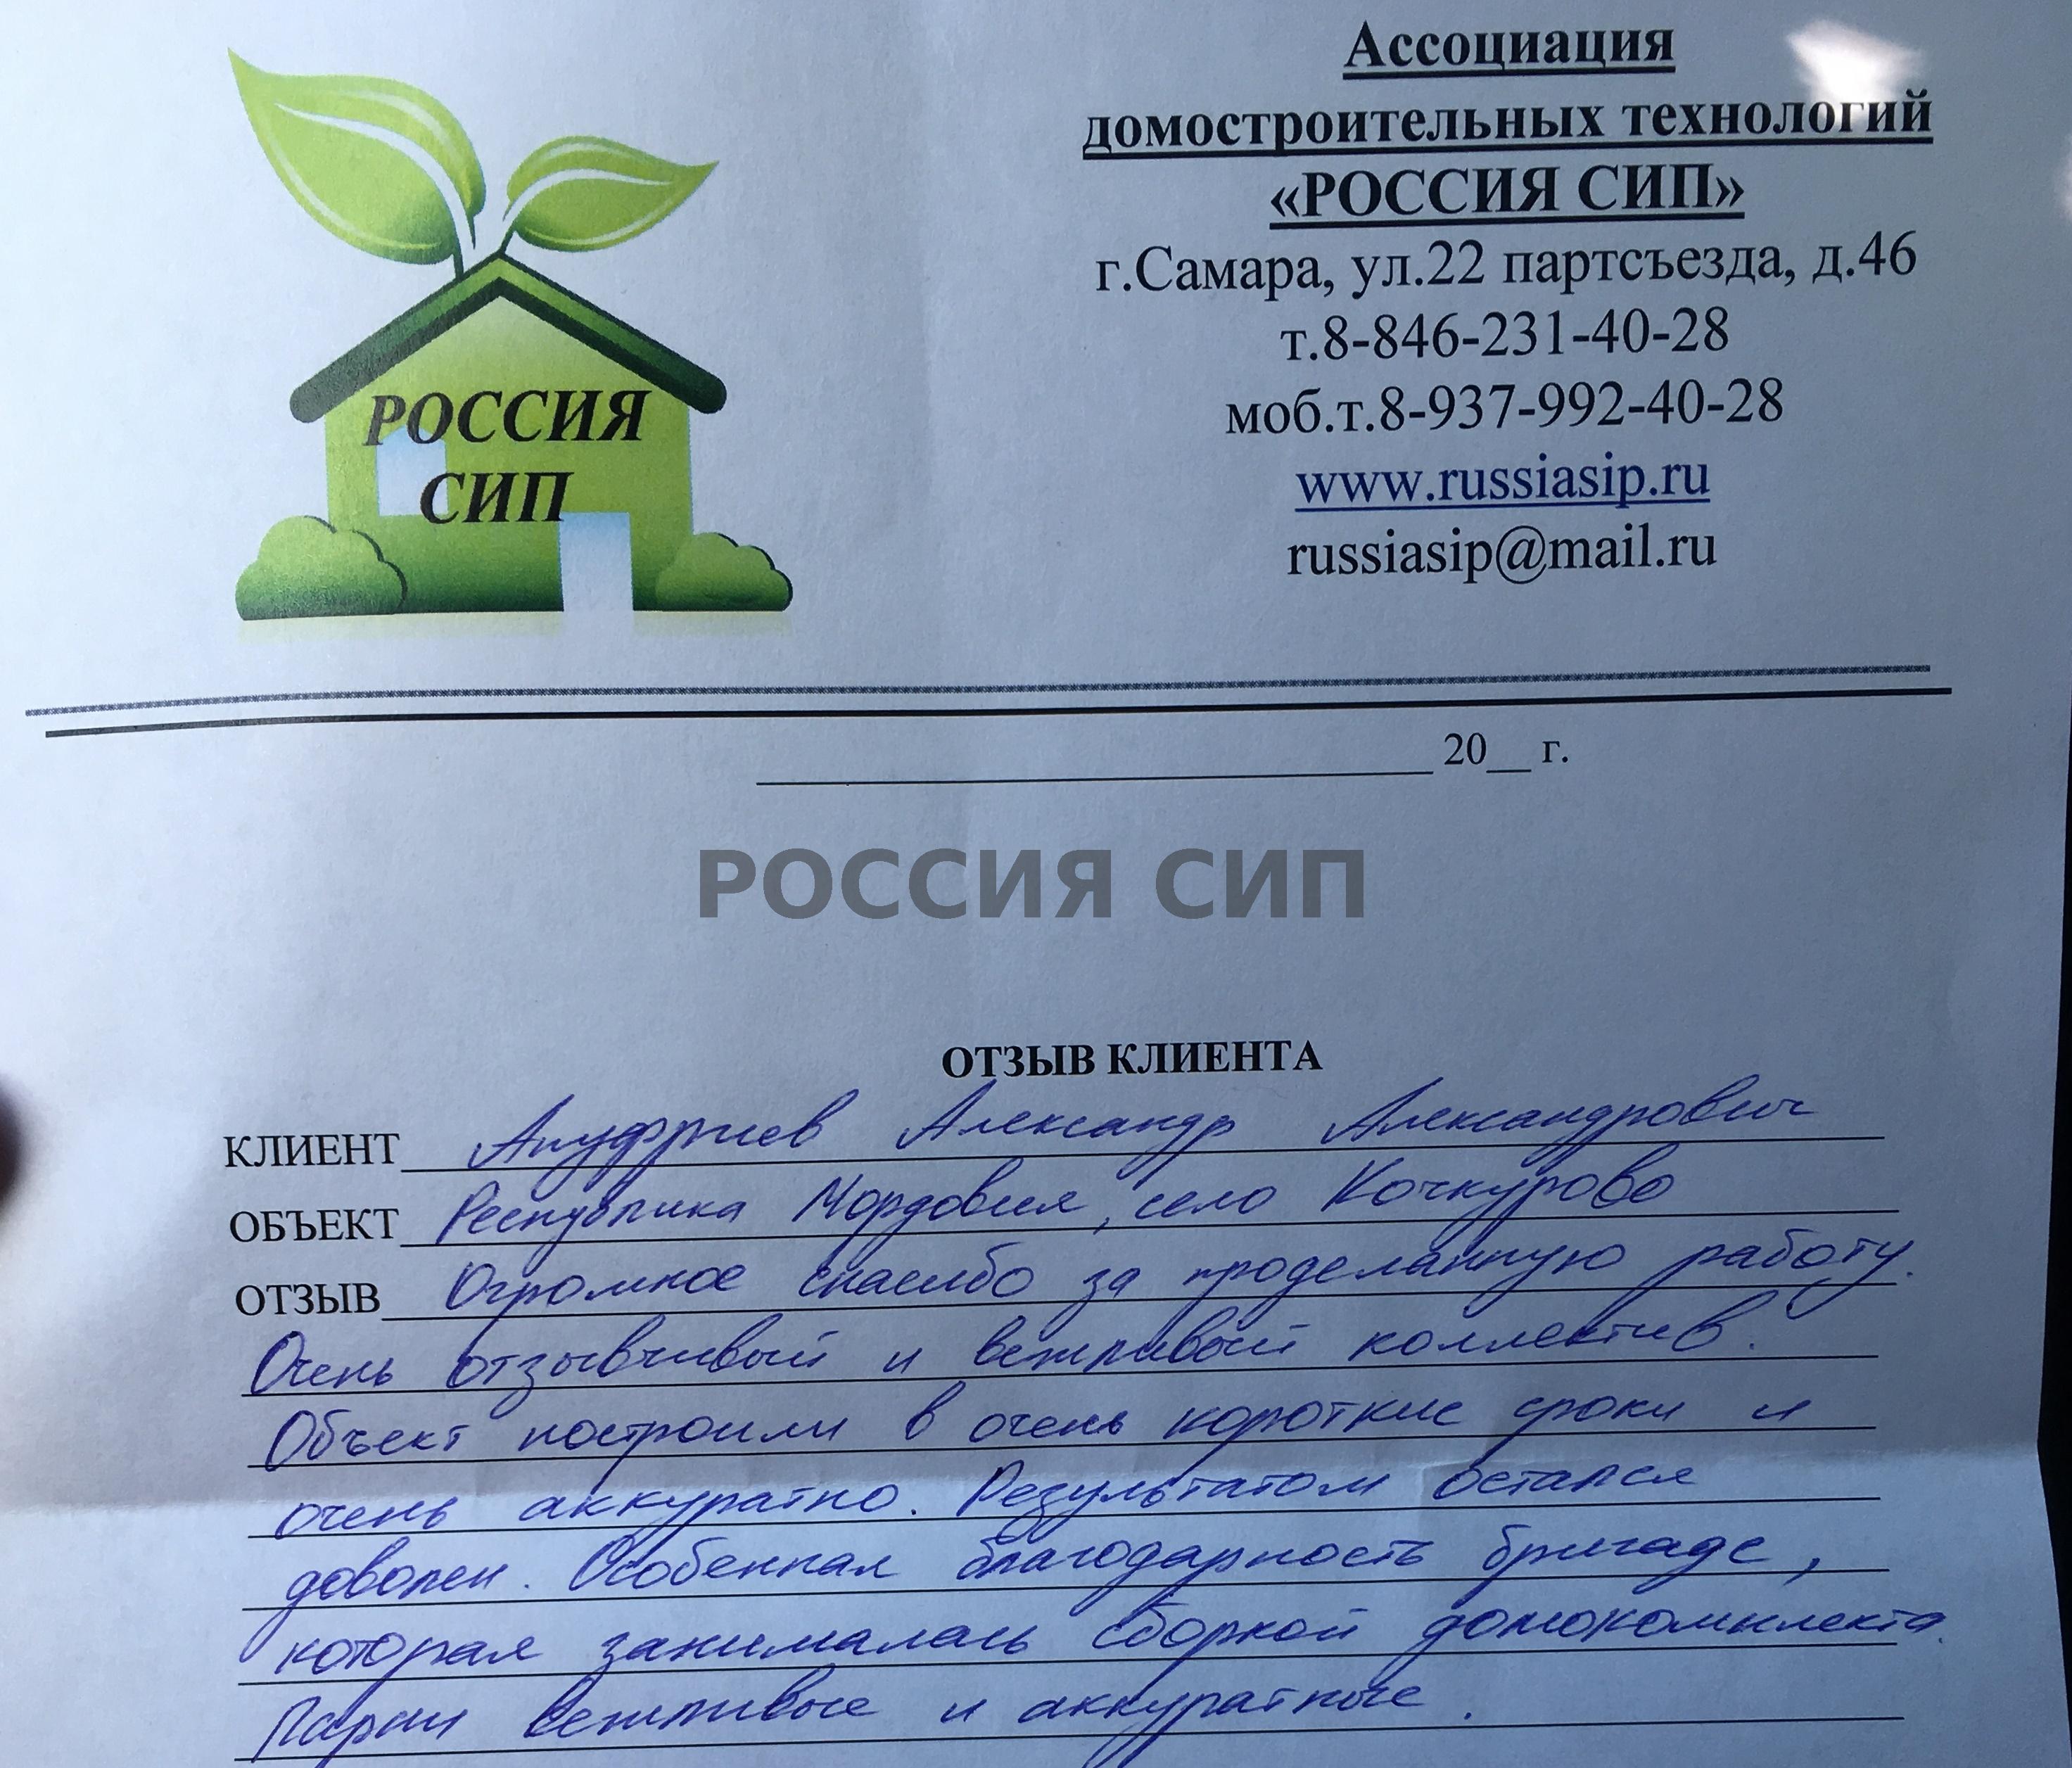 РОССИЯ
СИП
Ассоциация
домостроительных технологий
«РОССИЯ СИП»
г.Самара, ул.22 партсъезда, д.46
т.8-846-231-40-28
моб.т.8-937-992-40-28
www.russiasip.ru
russiasip@mail.ru
20__ г.
РОССИЯ СИП
ОТЗЫВ КЛИЕНТА
КЛИЕНТ Ануфриев Александр Александрович
ОБЪЕКТ Республика Мордовия, село Кочкурово
ОТЗЫВ Огромное спасибо за проделанную работу.
Очень отзывчивый и вежливый коллектив.
Объект построили в очень короткие сроки и
очень аккуратно. Результатом остался
доволен. Особенная благодарность бригаде,
которая занималась сборкой домокомплекта.
Парни вежливые и аккуратные.